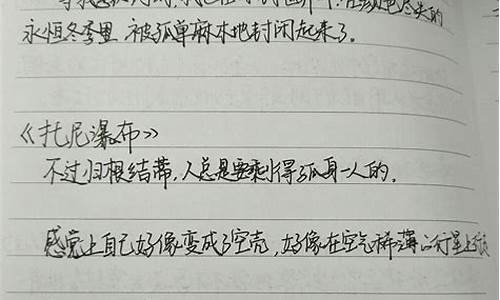 永恒冬季里,被孤单麻木地封闭起来了.
《托尼瀑布》
不过归根结蒂,人总是要剩得孤身一人的.
感觉上自己好像变成了空壳,好像在空气稀薄的行星上